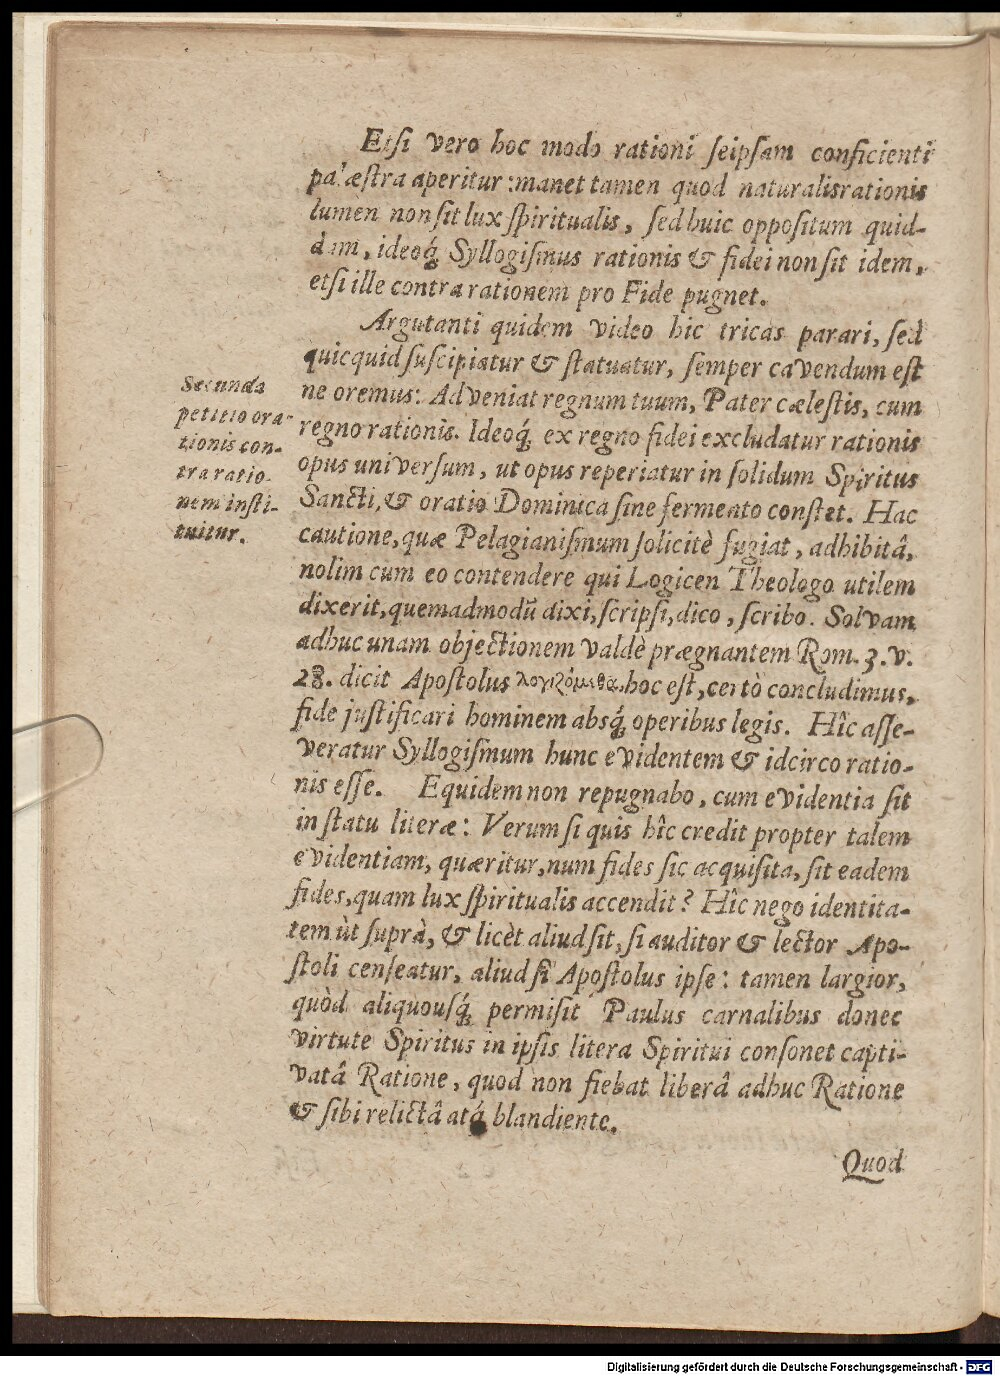 Etſi vero hoc modo rationi ſeipſam conficienti
palæſtra aperitur: manet tamen quod naturalis rationis
lumèn non ſit lux ſpiritualis, ſed huic oppoſitum quid-
dam, ideoq́; Syllogiſmus rationis & fidei non ſit idem,
etſi ille contra rationem pro Fide pugnet.
Argutanti quidem video hic tricas parari, ſed
quicquid ſuſcipiatur & ſtatuatur, ſemper cavendum eſt
ne oremus: Adveniat regnum tuum, Pater cæleſtis, cum
regno rationis. Ideoq́; ex regno fidei excludatur rationis
opus univerſum, ut opus reperiatur in ſolidum Spiritus
Sancti, & oratio Dominica ſine fermento conſtet. Hac
cautione, quæ Pelagianiſmum ſolicitè fugiat, adhibitâ,
nolim cum eo contendere qui Logicen Theologo utilem
dixerit, quemadmodũ dixi, ſcripſi, dico, ſcribo. Solvam
adhuc unam objectionem valdè prægnantem Rom. 3. v.
28. dicit Apoſtolus λογιζόμεθα, hoc eſt, certò concludimus,
fide juſtificari hominem absq́; operibus legis. Hîc aſſe-
veratur Syllogiſmum hunc evidentem & idcirco ratio-
nis eſſe. Equidem non repugnabo, cum evidentia ſit
in ſtatu literæ: Verum ſi quis hîc credit propter talem
evidentiam, quæritur, num fides ſic acquiſita, ſit eadem
fides, quam lux ſpiritualis accendit? Hîc nego identita-
tem ùt ſuprà, & licèt aliud ſit, ſi auditor & lector Apo-
ſtoli cenſeatur, aliud ſi Apoſtolus ipſe: tamen largior,
quòd aliquouſq́; permiſit Paulus carnalibus donec
virtute Spiritus in ipſis litera Spiritui conſonet capti-
vatâ Ratione, quod non fiebat liberâ adhuc Ratione
& ſibi relictâ atq́; blandiente.
Quod
Secunda
petitio ora-
tionis con-
tra ratio-
nem inſti-
tuitur.
Digitalisierung gefördert durch die Deutsche Forschungsgemeinschaft - DFG